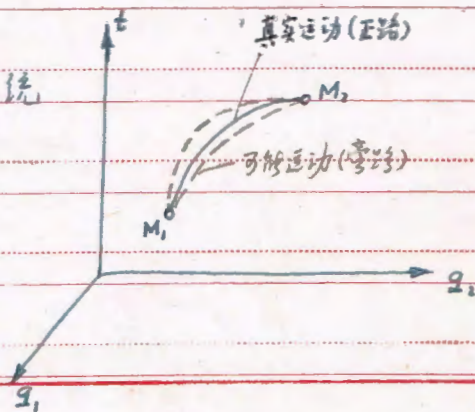 t
真实运动(正路)
统
M₂
可能运动(旁路)
M₁
q₂
q₁